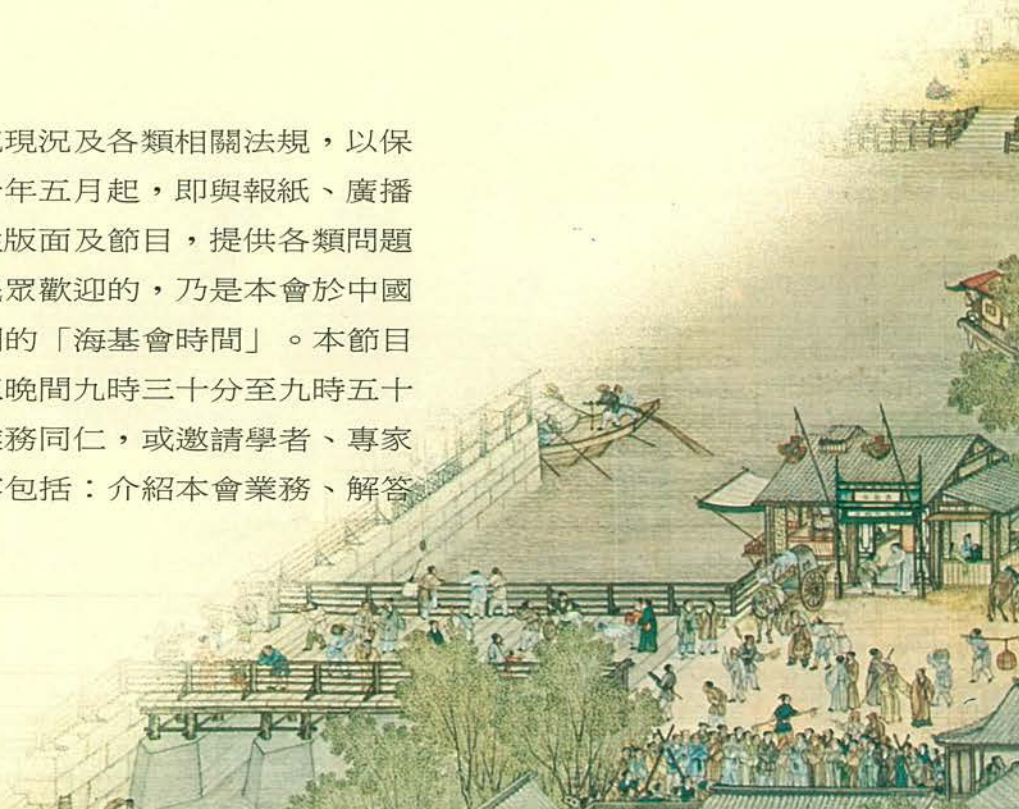 現況及各類相關法規，以保
年五月起，即與報紙、廣播
版面及節目，提供各類問題
眾歡迎的，乃是本會於中國
的「海基會時間」。本節目
晚間九時三十分至九時五十
務同仁，或邀請學者、專家
包括：介紹本會業務、解答